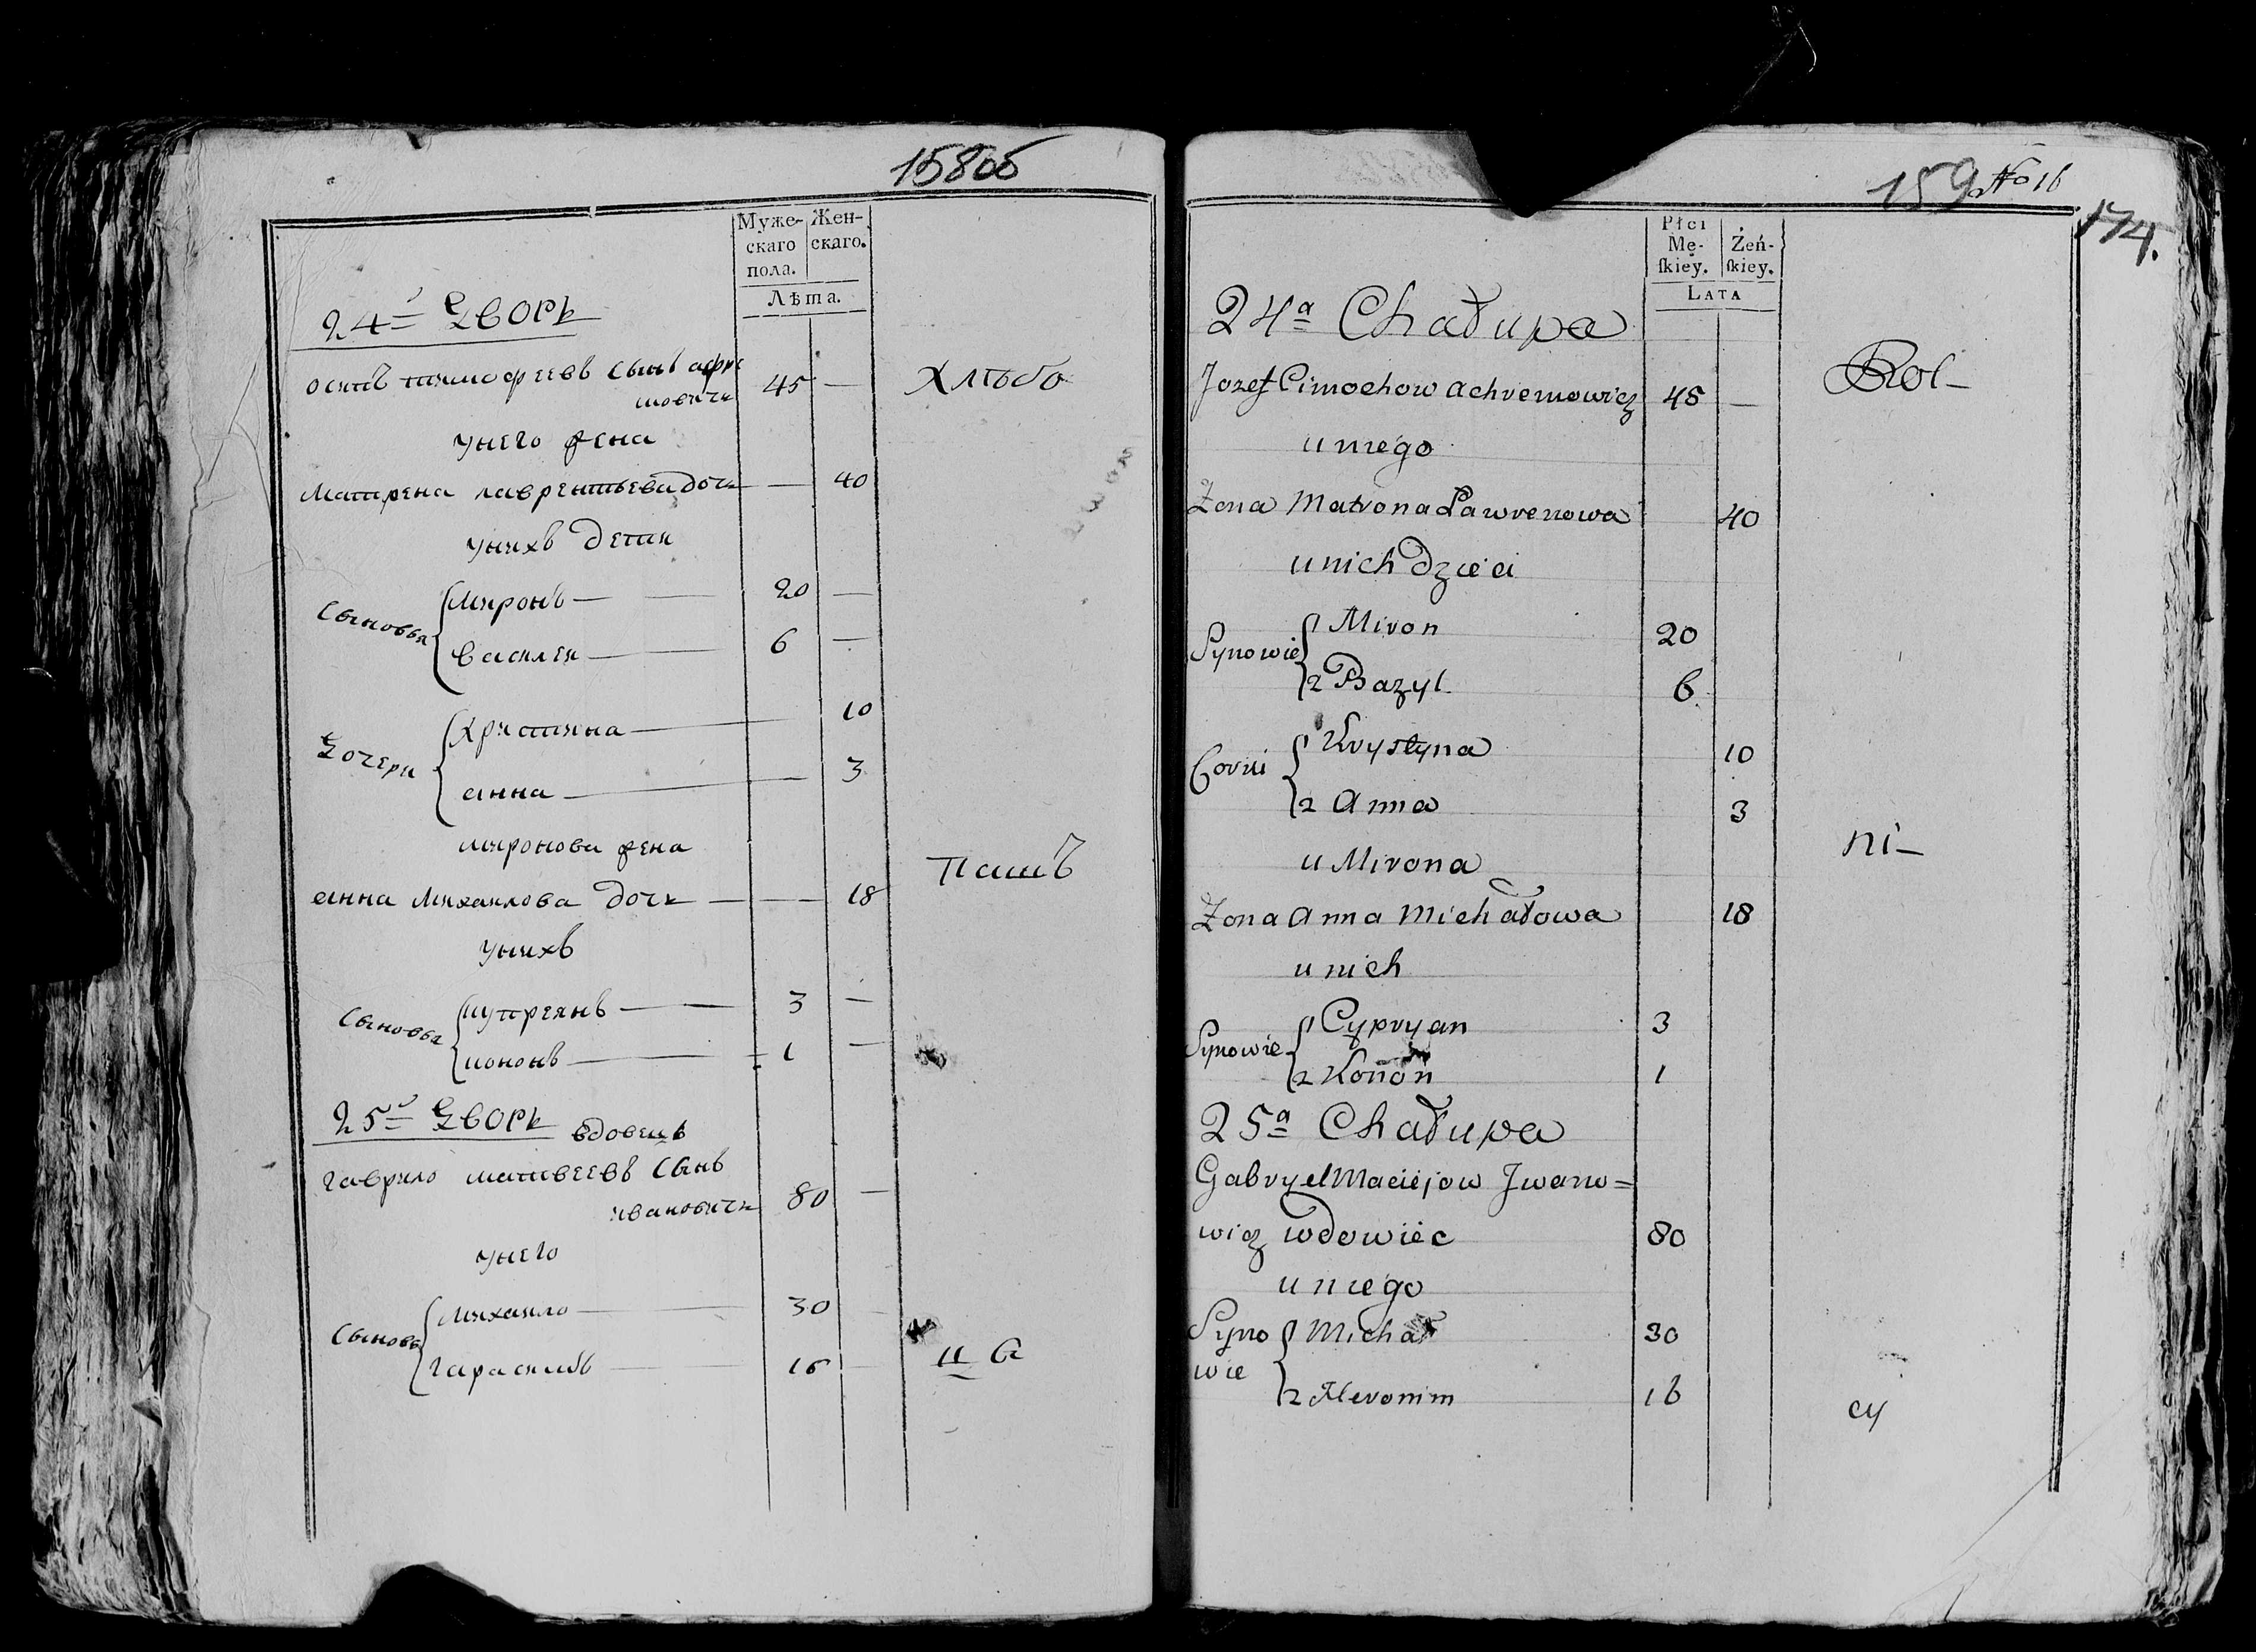 158об
Муже- Жен-
скаго скаго.
пола.
Лѣта.
24й Дворъ
осипъ тимофеевъ сынъ ахре 45 — Хлѣбо
мовичъ
унего жена
Матрена лаврентьева дочь — 40
унихъ дети
Сыновья
Миронъ — 20 —
василеи — 6 —
Дочери
Христина — 10
анна — 3
миронова жена
Пашъ
анна Михаилова дочь — — 18
унихъ
Сыновья
купреянъ — 3 —
кононъ — 1 —
25й Дворъ вдовецъ
гаврило матвеевъ сынъ
ивановичъ 80 —
унего
Сыновья
Михаило — 30
гарасимъ — 16 —
цы
159 No 16
174.
Płci
Mę- Żeń-
ſkiey. ſkiey.
LATA
24a Chałupa
Jozef Cimochow Achremowicz 45 — Rol-
u niego
Żona Matrona Ławrenowa 40
u nich dzieci
Synowie
1 Miron 20
2 Bazyl 6
Corki
1 Krystyna 10
2 Anna 3
u Mirona
ni-
Żona Anna Michałowa 18
u nich
Synowie
1 Cypryan 3
2 Konon 1
25a Chałupa
Gabryel Maciejow Jwano=
wicz wdowiec 80
u niego
Syno
wie
1 Michał 30
2 Hieronim 16
cy